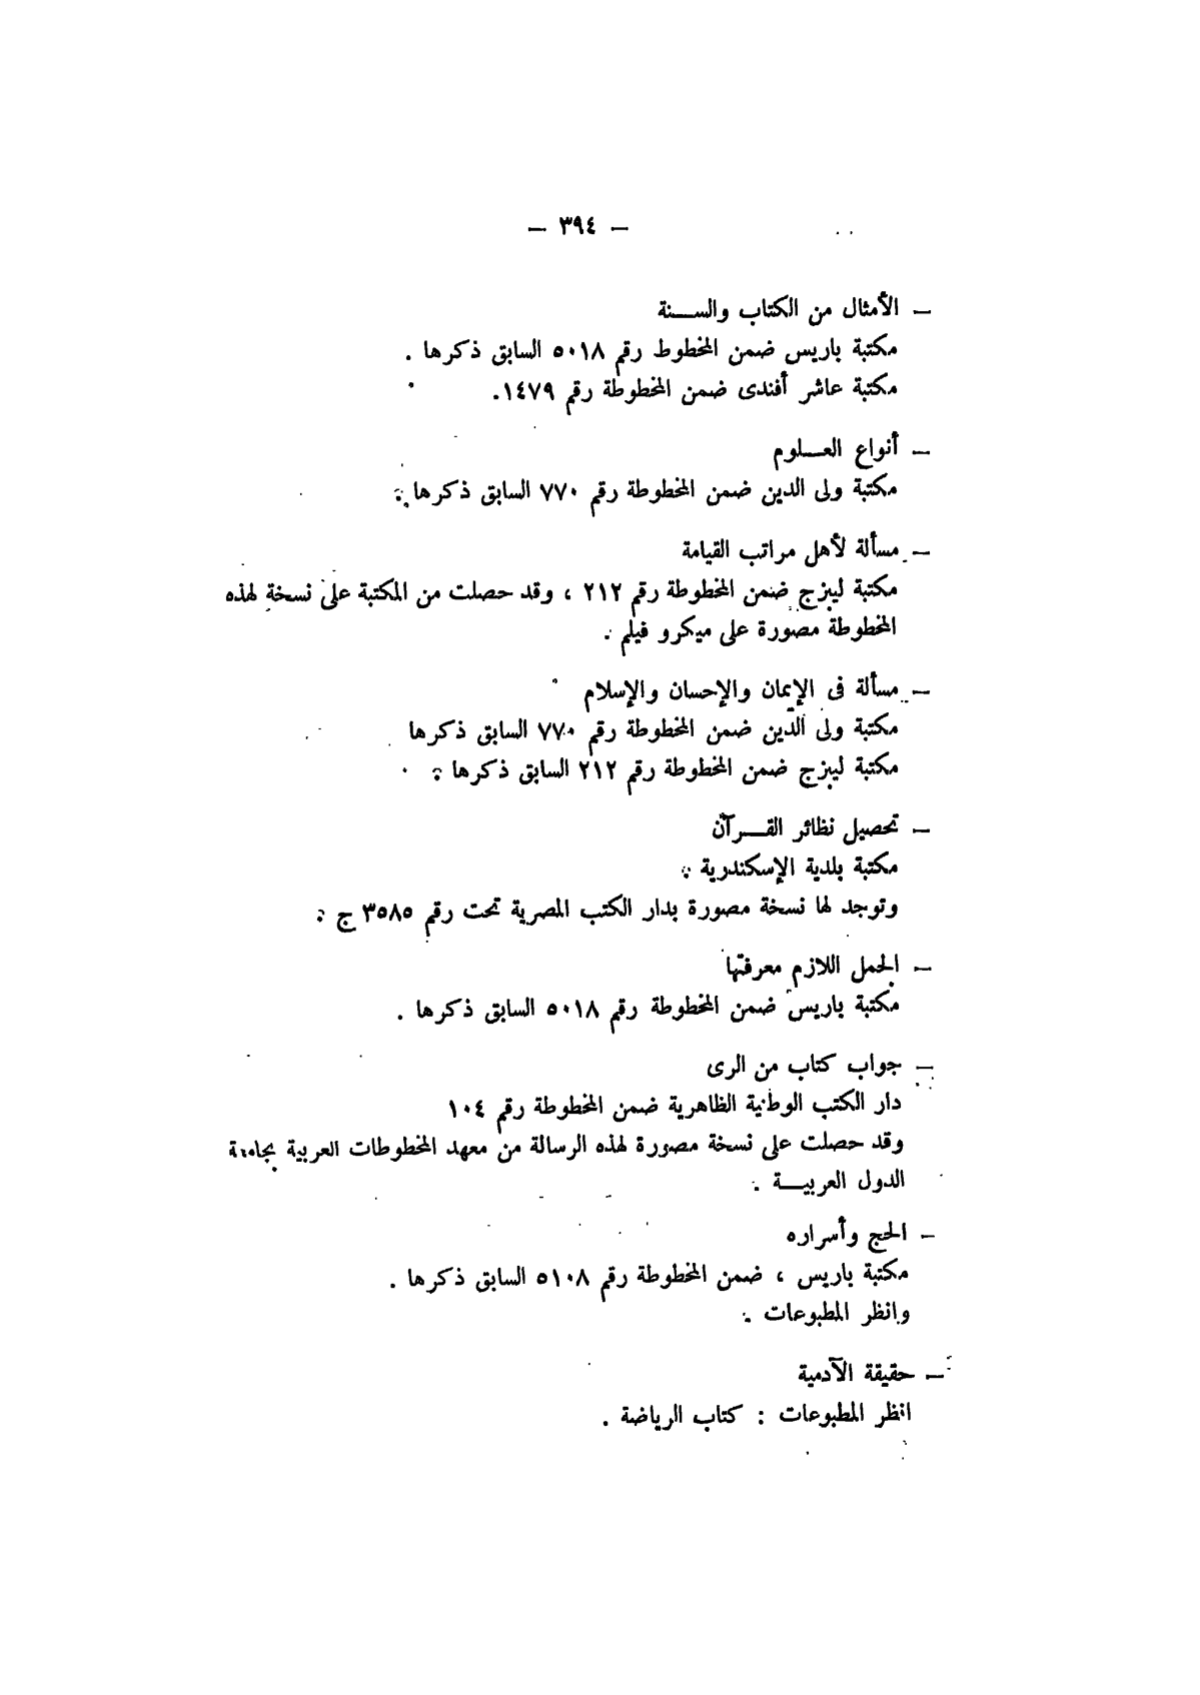 — ٣٩٤ —
— الأمثال من الكتاب والسـنة
مكتبة باريس ضمن المخطوط رقم ٥٠١٨ السابق ذكرها .
مكتبة عاشر أفندى ضمن المخطوطة رقم ١٤٧٩.
— أنواع العـلوم
مكتبة ولى الدين ضمن المخطوطة رقم ٧٧٠ السابق ذكرها .
— مسألة لأهل مراتب القيامة
مكتبة ليبزج ضمن المخطوطة رقم ٢١٢ ، وقد حصلت من المكتبة على نسخة لهذه
المخطوطة مصورة على ميكرو فيلم .
— مسألة فى الإيمان والإحسان والإسلام
مكتبة ولى الدين ضمن المخطوطة رقم ٧٧٠ السابق ذكرها
مكتبة ليبزج ضمن المخطوطة رقم ٢١٢ السابق ذكرها .
— تحصيل نظائر القـرآن
مكتبة بلدية الإسكندرية .
وتوجد لها نسخة مصورة بدار الكتب المصرية تحت رقم ٣٥٨٥ ج .
— الجمل اللازم معرفتها
مكتبة باريس ضمن المخطوطة رقم ٥٠١٨ السابق ذكرها .
— جواب كتاب من الرى
دار الكتب الوطنية الظاهرية ضمن المخطوطة رقم ١٠٤
وقد حصلت على نسخة مصورة لهذه الرسالة من معهد المخطوطات العربية بجامعة
الدول العربيـة .
— الحج وأسراره
مكتبة باريس ، ضمن المخطوطة رقم ٥١٠٨ السابق ذكرها .
وانظر المطبوعات .
— حقيقة الآدمية
انظر المطبوعات : كتاب الرياضة .